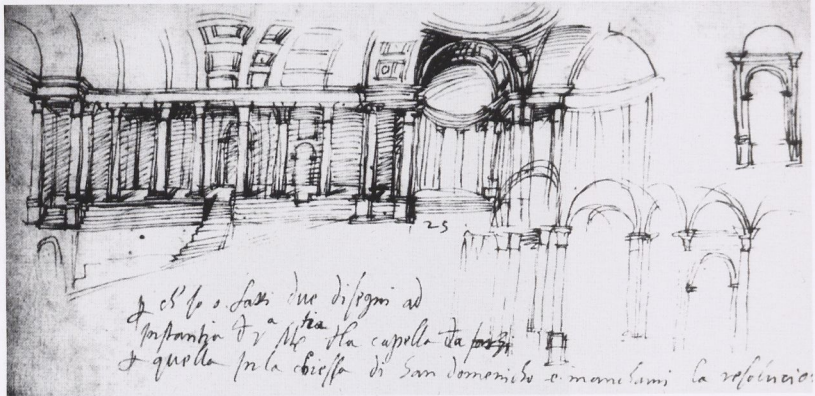 25
ch' io o fatti due disegni ad
instantia di v.a M.tia dla capella da farsi
quella in la chiessa di San domenicho e manchami la resolucio